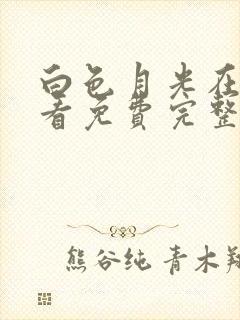 白色月光在
看免费完整
熊谷纯 青木翔